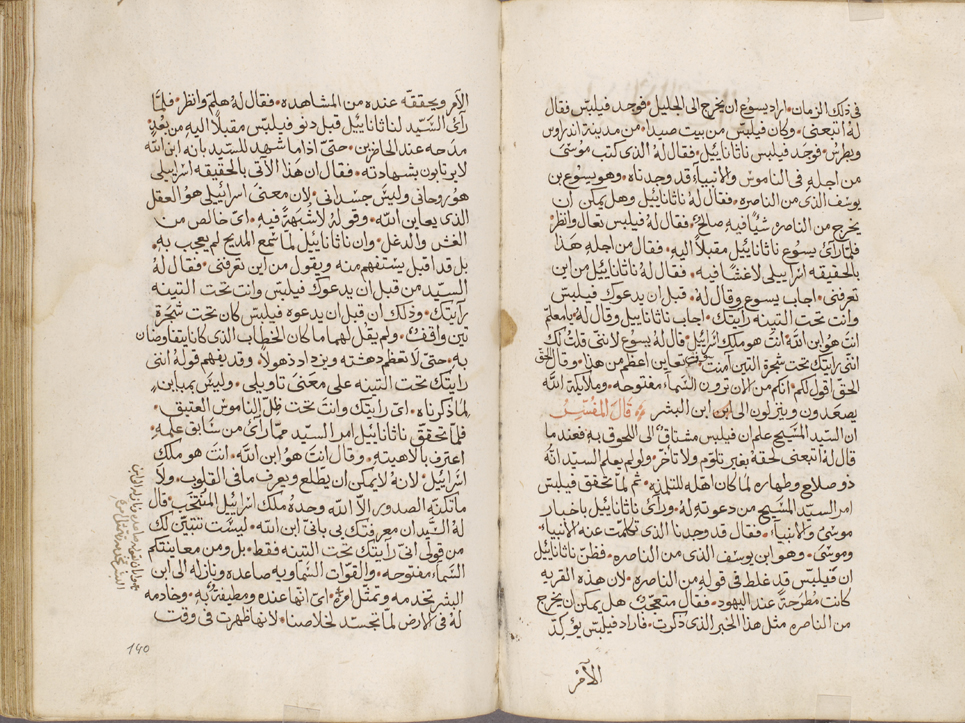 في ذلك الزمان • اراد يسوع ان يخرج الى الجليل • فوجد فيلبس فقال
لهُ اتبعني • وكان فيلبس من بيت صيدا • من مدينة اندراوس
وبطرس • فوجد فيلبس ناثانائيل • فقال لهُ الذى كتب موسَى
من اجلهِ فى الناموس والانبياء قد وجدناه • وهو يسوع بن
يوسف الذى من الناصره • فقال لهُ ناثانائيل وهل يمكن ان
يخرج من الناصره شيًا فيه صالحٌ • فقال لهُ فيلبس تعال وانظر
فلمّا رأى يسوع ناثانائيل مقبلاً اليهِ • فقال من اجلهِ هَذا
بالحقيقه اسراييلى لا غشّا فيه • فقال لهُ ناثانائيل من اين
تعرفنى • اجاب يسوع وقال لهُ • قبل ان يدعوك فيلبس
وانت تحت التينه رأيتك • اجاب ناثانائيل وقال لهُ يا معلم
انت هو ابن اللهَ انت هو ملك اسرائيل • قال لهُ يسوع لانّى قلت لك
اننى رايتك تحت شجرة التين آمنت سوف تعاين اعظم من هذا • وقال الحق
الحق اقول لكم • انكم من الان ترون السَّماء مفتوحه • وملايكة الله
يصعدون وينزلون الى ابن البشر • قال المفسّر
ان السيّد المسَيح علم ان فيلبس مشتاقٌ الى اللحوق بهِ فعندما
قال لهُ اتبعنى لحقهُ بغير تلوّم ولا تأخّر • ولو لم يعلم السيّد انّهُ
ذو صلاح وطهاره لما كان اهلهُ للتلمذه • ثم لما تحقق فيلبس
امر السيّد المسَيح من دعوتهِ لهُ • ورأى ناثانائيل باخبار
موسَىَ والانبياء • فقال قد وجدنا الذى تكلمت عنه الانبياء
وموسَى • وهو ابن يوسف الذى من الناصره • فظنّ ناثانائيل
ان فيلبس قد غلط فى قولهِ من الناصرة • لان هذه القريه
كانت مُطرَحةً عند اليهود • فقال متعجّبًا هل يمكن ان يخرج
من الناصره مثل هذا الخبر الذى ذكرت • فاراد فيلبس يؤكد
الآمْر
الآمر ويحققه عنده من المشاهده • فقال لهُ هلمّ وانظر • فلمّا
رأى السَّيّد لناثانائيل قبل دنو فيلبس مقبلاً اليه من بُعدٍ
مدَحه عند الحاضرين • حتىّ اذا ما شهد للسيّد بانه ابن الله
لا يرتابون بشهادتهِ • فقال ان هَذا الآتى بالحقيقه اسراييلى
هو رُوحانى وليسَ جسدانى • لان معنىَ اسراييلى هو العقل
الذى يعاين الله • وقولهُ لا شُبهَةً فيهِ • اىّ خالص من
الغش والدغل • وان ناثانائيل لمّا سَمع المديح لم يعجب بهِ
بل قد اقبل يسَتفهم منه ويقول من اين تعرفنى • فقال لهُ
السيّد من قبل ان يدعوك فيلبس وانت تحت التينه
رآيتك • وذلك ان قبل ان يدعوه فيلبس كان تحت شجَرة
تين واقفٌ • ولم يقل لهما ما كان الخطاب الذى كانا يتفاوضان
بهِ • حتىّ لا تعظم دهشته ويزداد ذهولاً • وقد يفهم قولهُ اننى
رايتك تحت التينه على معنىً تاويلى • وليسَ بمباينٍ
لما ذكرناه • اىّ رايتك وانت تحت ظلّ الناموس العتيق •
فلمّا تحقق ناثانائيل امر السيّد ممّا رأى من سَابق علمهِ •
اعترف بالاهيته • وقال انتَ هو ابن الله • انت هو ملك
اسَرائيل • لانهُ لا يمكن ان يطلع ويعرف ما فى القلوب • ولا
ما تكنّهُ الصدور الا الله وحدهُ ملك اسرائيل المنتخب • قال
لهُ السَّيّد ان معرفتك بى بانىّ ابن الله • ليسَت تتبيّن لك
من قولى انى رايتك تحت التينه فقط • بل ومن معاينتكم
السَّماء مفتوحه • والقوّات السَّماويه صاعده ونازله الى ابن
البشر تخدمه وتمتثل امرهُ • اىّ انها عنده ومطيفةٌ بهِ • وخادمه
لهُ فى الارض لمّا تجسّد لخلاصنا • لانها ظهرت فى وقت
140